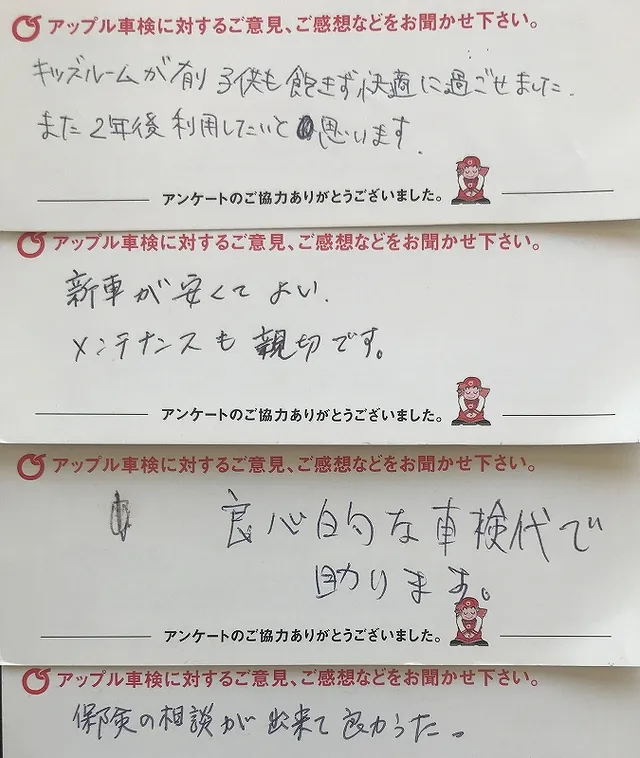 アップル車検に対するご意見、ご感想などをお聞かせ下さい。
キッズルームが有り 子供も飽きず快適に過ごせました.
また2年後利用したいと思います.
アンケートのご協力ありがとうございました。
アップル車検に対するご意見、ご感想などをお聞かせ下さい。
新車が安くてよい.
メンテナンスも親切です。
アンケートのご協力ありがとうございました。
アップル車検に対するご意見、ご感想などをお聞かせ下さい。
良心的な車検代で
助ります。
アンケートのご協力ありがとうございました。
アップル車検に対するご意見、ご感想などをお聞かせ下さい。
保険の相談が出来て良かった。